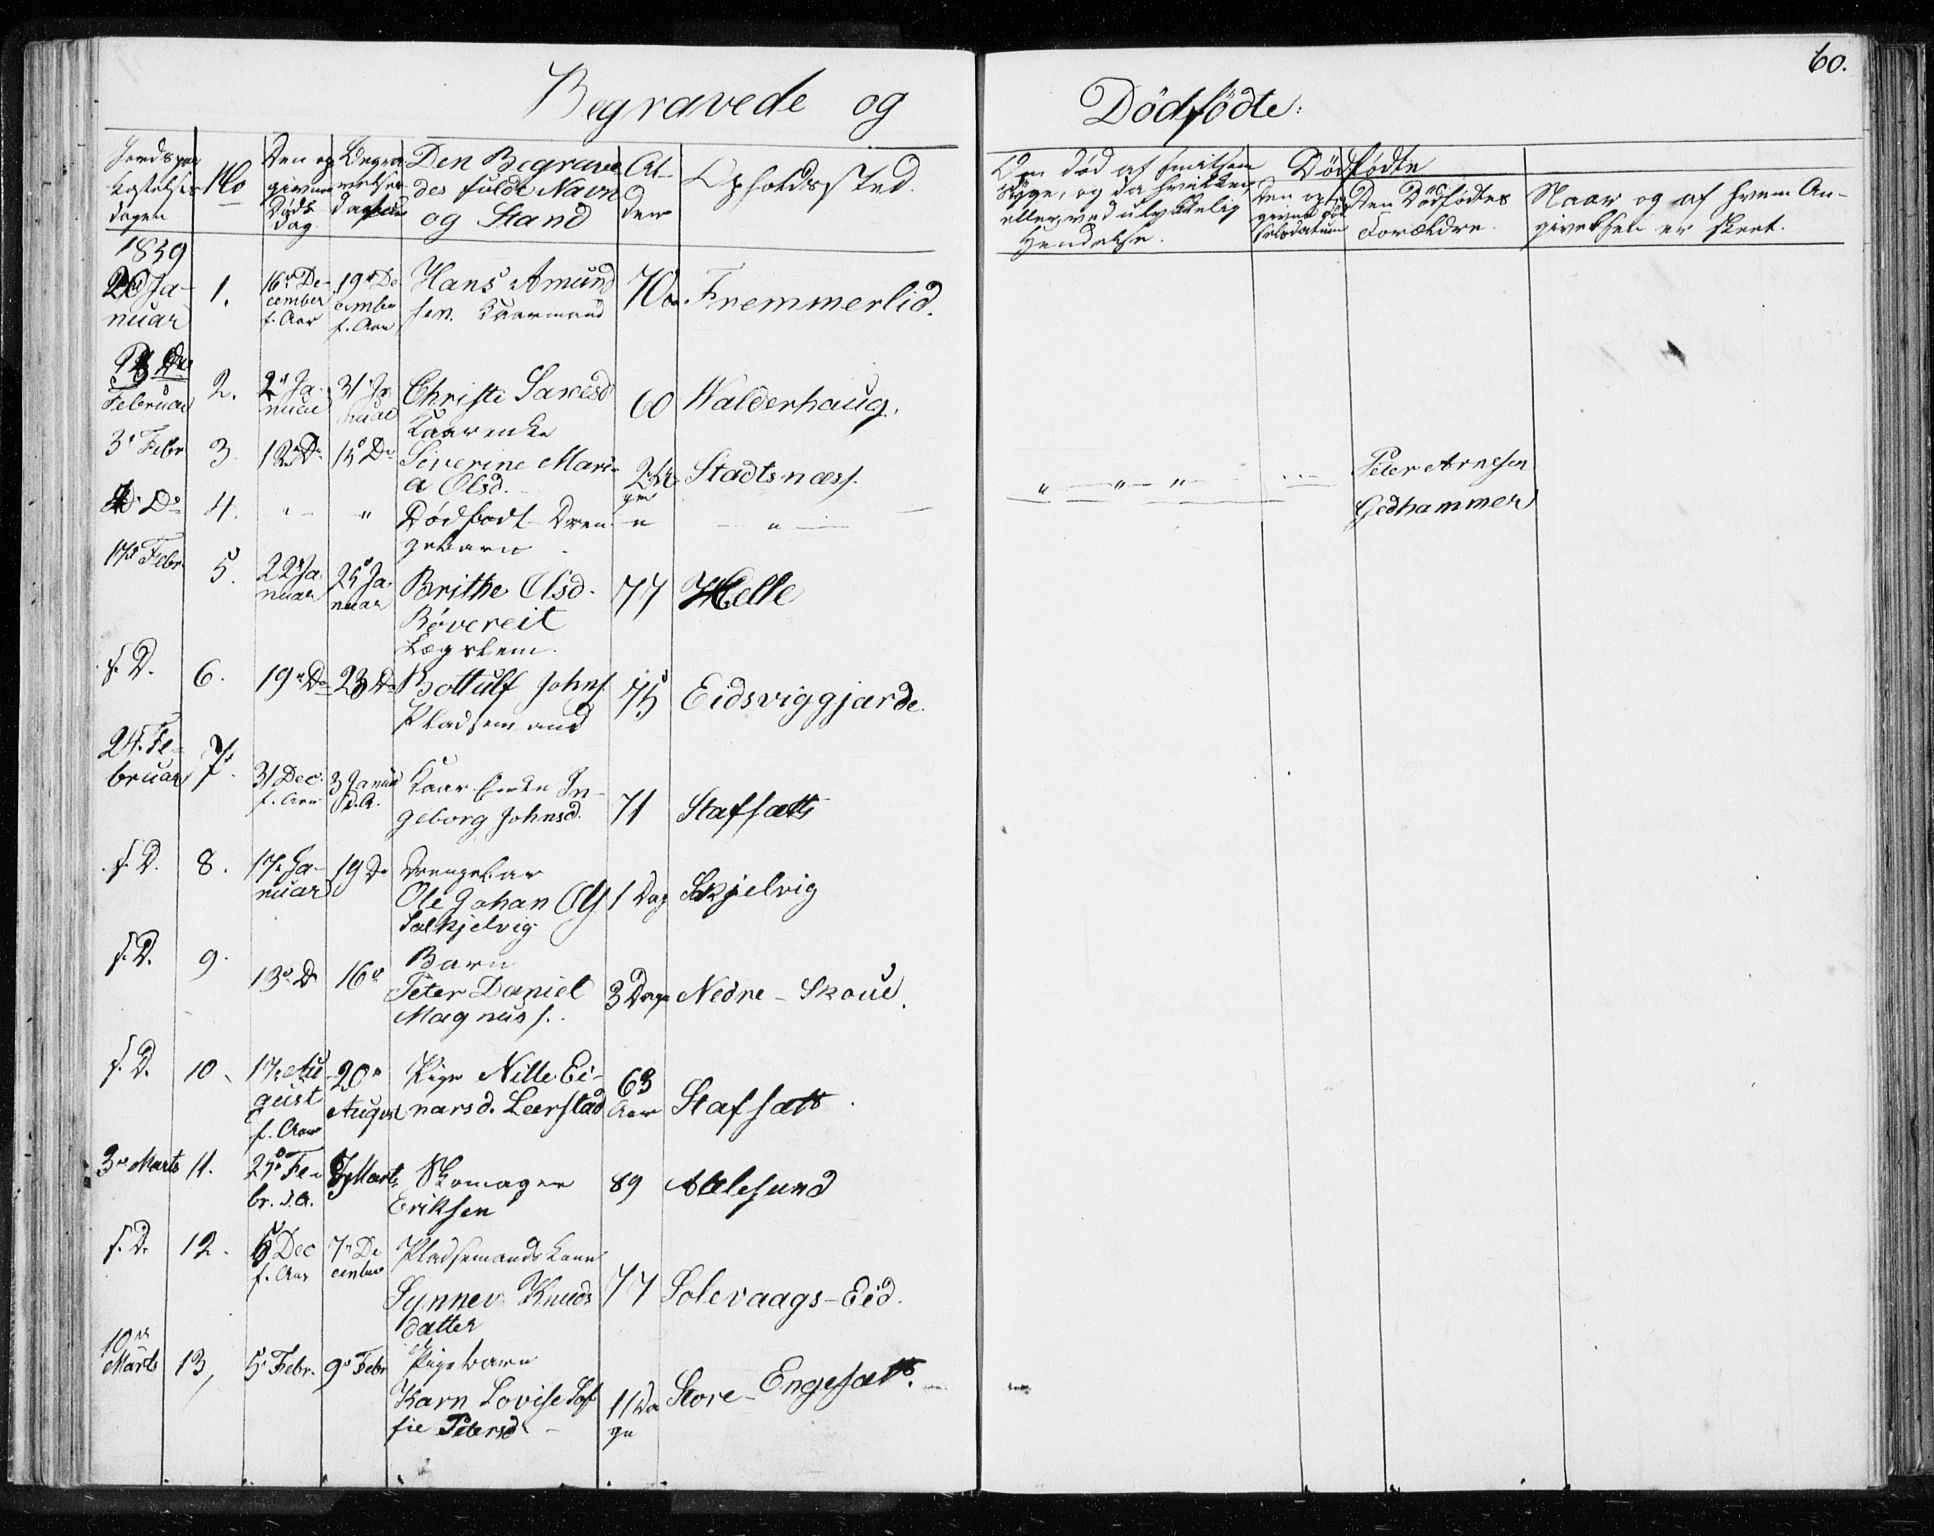 60.
Begravede og Dödfödte.
Jordspaa
kastelses
dagen
No
Den op
givne
Døds
dag
Begra
velses
dagen
Den Begrave
des fulde Navn
og Stand
Al-
der
Opholdssted.
Om død af smitsom
Syge, og da hvilken
eller ved ulykkelig
Hendelse.
Dödfödte
Den op
givne Fød
selsdatum
Den Dödfödtes
Forældre.
Naar og af hvem An-
givelsen er skeet.
1839
20 Ja-
nuar
1.
16de De-
cember
f. Aar
19de De
cember
f. Aar
Hans Amund
sen. Kaarmand
70
Fremmerlid.
Februar
2.
2 Ja-
nuar
31 Ja
nuar
Christi Saresd
Kaarenke
60
Walderhaug.
3 Febr
3.
12 Do
15 Do
Siverine Mari-
a Olsd.
Stadtsnæss.
Do
4.
" "
Dødfødt Dren-
gebarn
" "
" " "
Peter Arnesen
Gedhammer
17 Febr.
5.
22 Ja
nuar
25 Ja-
nuar
Brithe Olsd.
Røvereit
Lægslem.
77
Helle
s. D.
6.
19 Do
23 Do
Bottulf Johns.
Pladsemand
75
Eidsviggjærde.
24. Fe-
bruar
7.
31 Dec.
f. Aar
3 Januar
d. A.
Kaar Enke In-
geborg Johnsd.
71
Stafsæth
s. D.
8.
17. Ja-
nuar
19 Do
Drengebar
Ole Johan Ols
Solkjelvig
1 Dag
Skjelvig
s. D.
9.
13 Do
16
Barn
Peter Daniel
Magnuss.
3 Dage
Nedre - Skoue.
s. D.
10.
17. Au
gust
f. Aar
20
August
Pige Nille Ei-
narsd. Leerstad
63
Aar
Stafsæth.
3 Marts
11.
25 Fe-
br. d. A.
Marts
Skomager
Eriksen
89
Aalesund
s. D.
12.
5 Dec
f. Aar
7 De
cember
Pladsemands Kone
Synnev Knuds
datter
77
Solevaags-Eid.
10de
Marts
13,
5 Febr.
9 Febr
Pigebarn
Karn Lovise Sof
fie Petersd
11 Da
ge
Store- Engesæth.